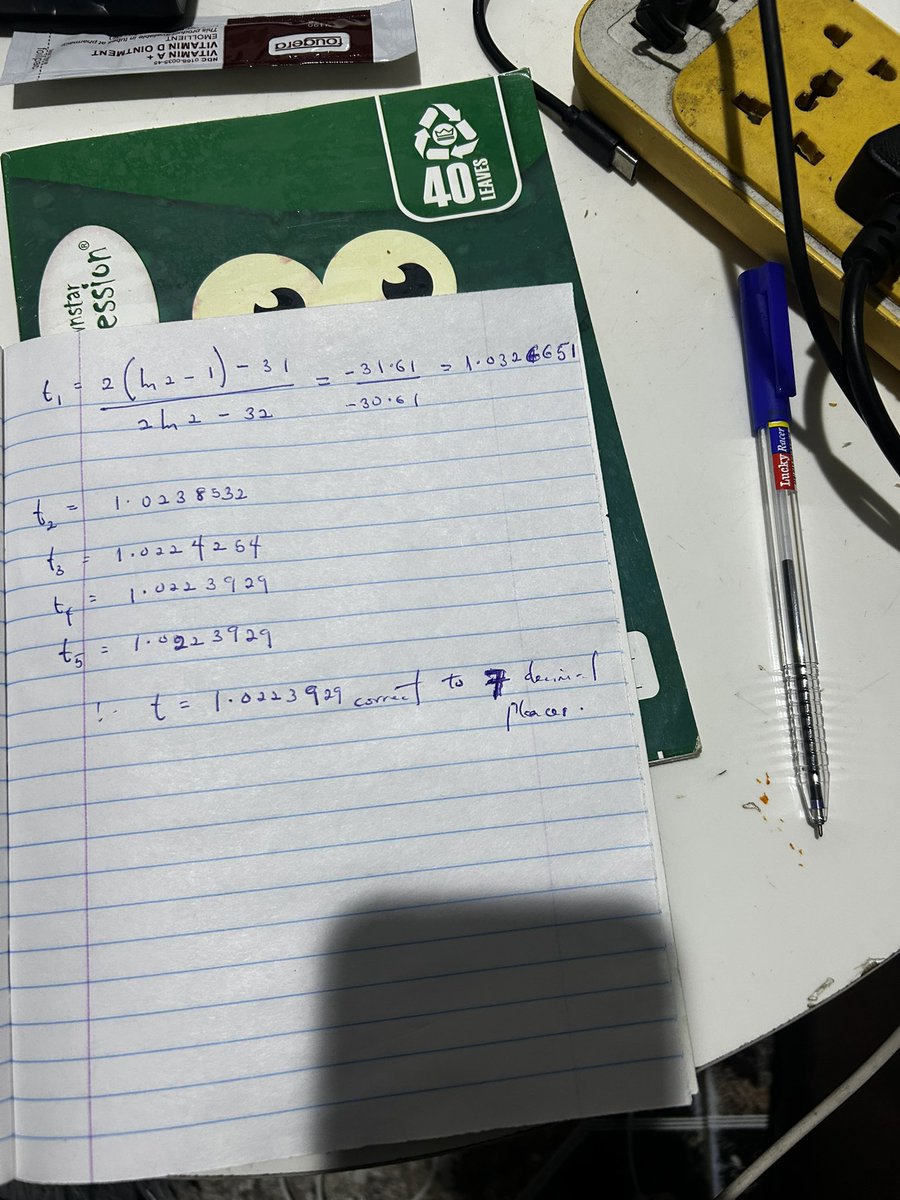 fougera
VITAMIN A +
VITAMIN D OINTMENT
EMOLLIENT
NDC 0168-0035-45
40 LEAVES
ession®
t₁ = 2(ln 2 - 1) - 31 / 2 ln 2 - 32 = -31.61 / -30.61 = 1.0326651
t₂ = 1.0238532
t₃ = 1.0224254
t₄ = 1.0223929
t₅ = 1.0223929
∴ t = 1.0223929 correct to 7 decimal
places.
Lucky Racer